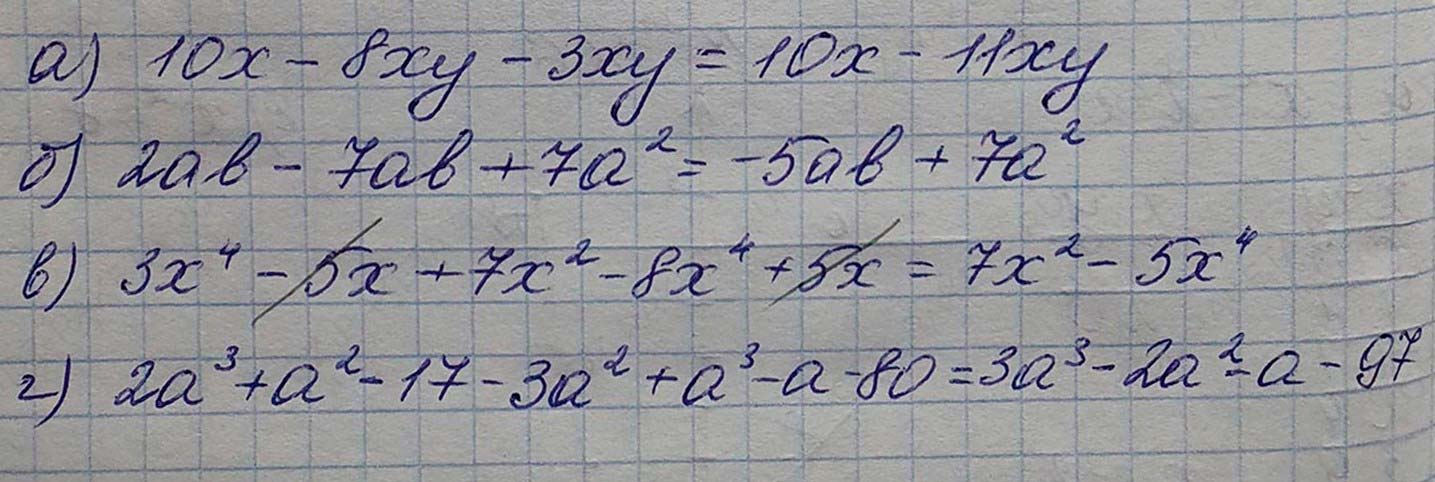 а) 10x - 8xy - 3xy = 10x - 11xy
б) 2ab - 7ab + 7a² = -5ab + 7a²
в) 3x⁴ - 5x + 7x² - 8x⁴ + 5x = 7x² - 5x⁴
г) 2a³ + a² - 17 - 3a² + a³ - a - 80 = 3a³ - 2a² - a - 97